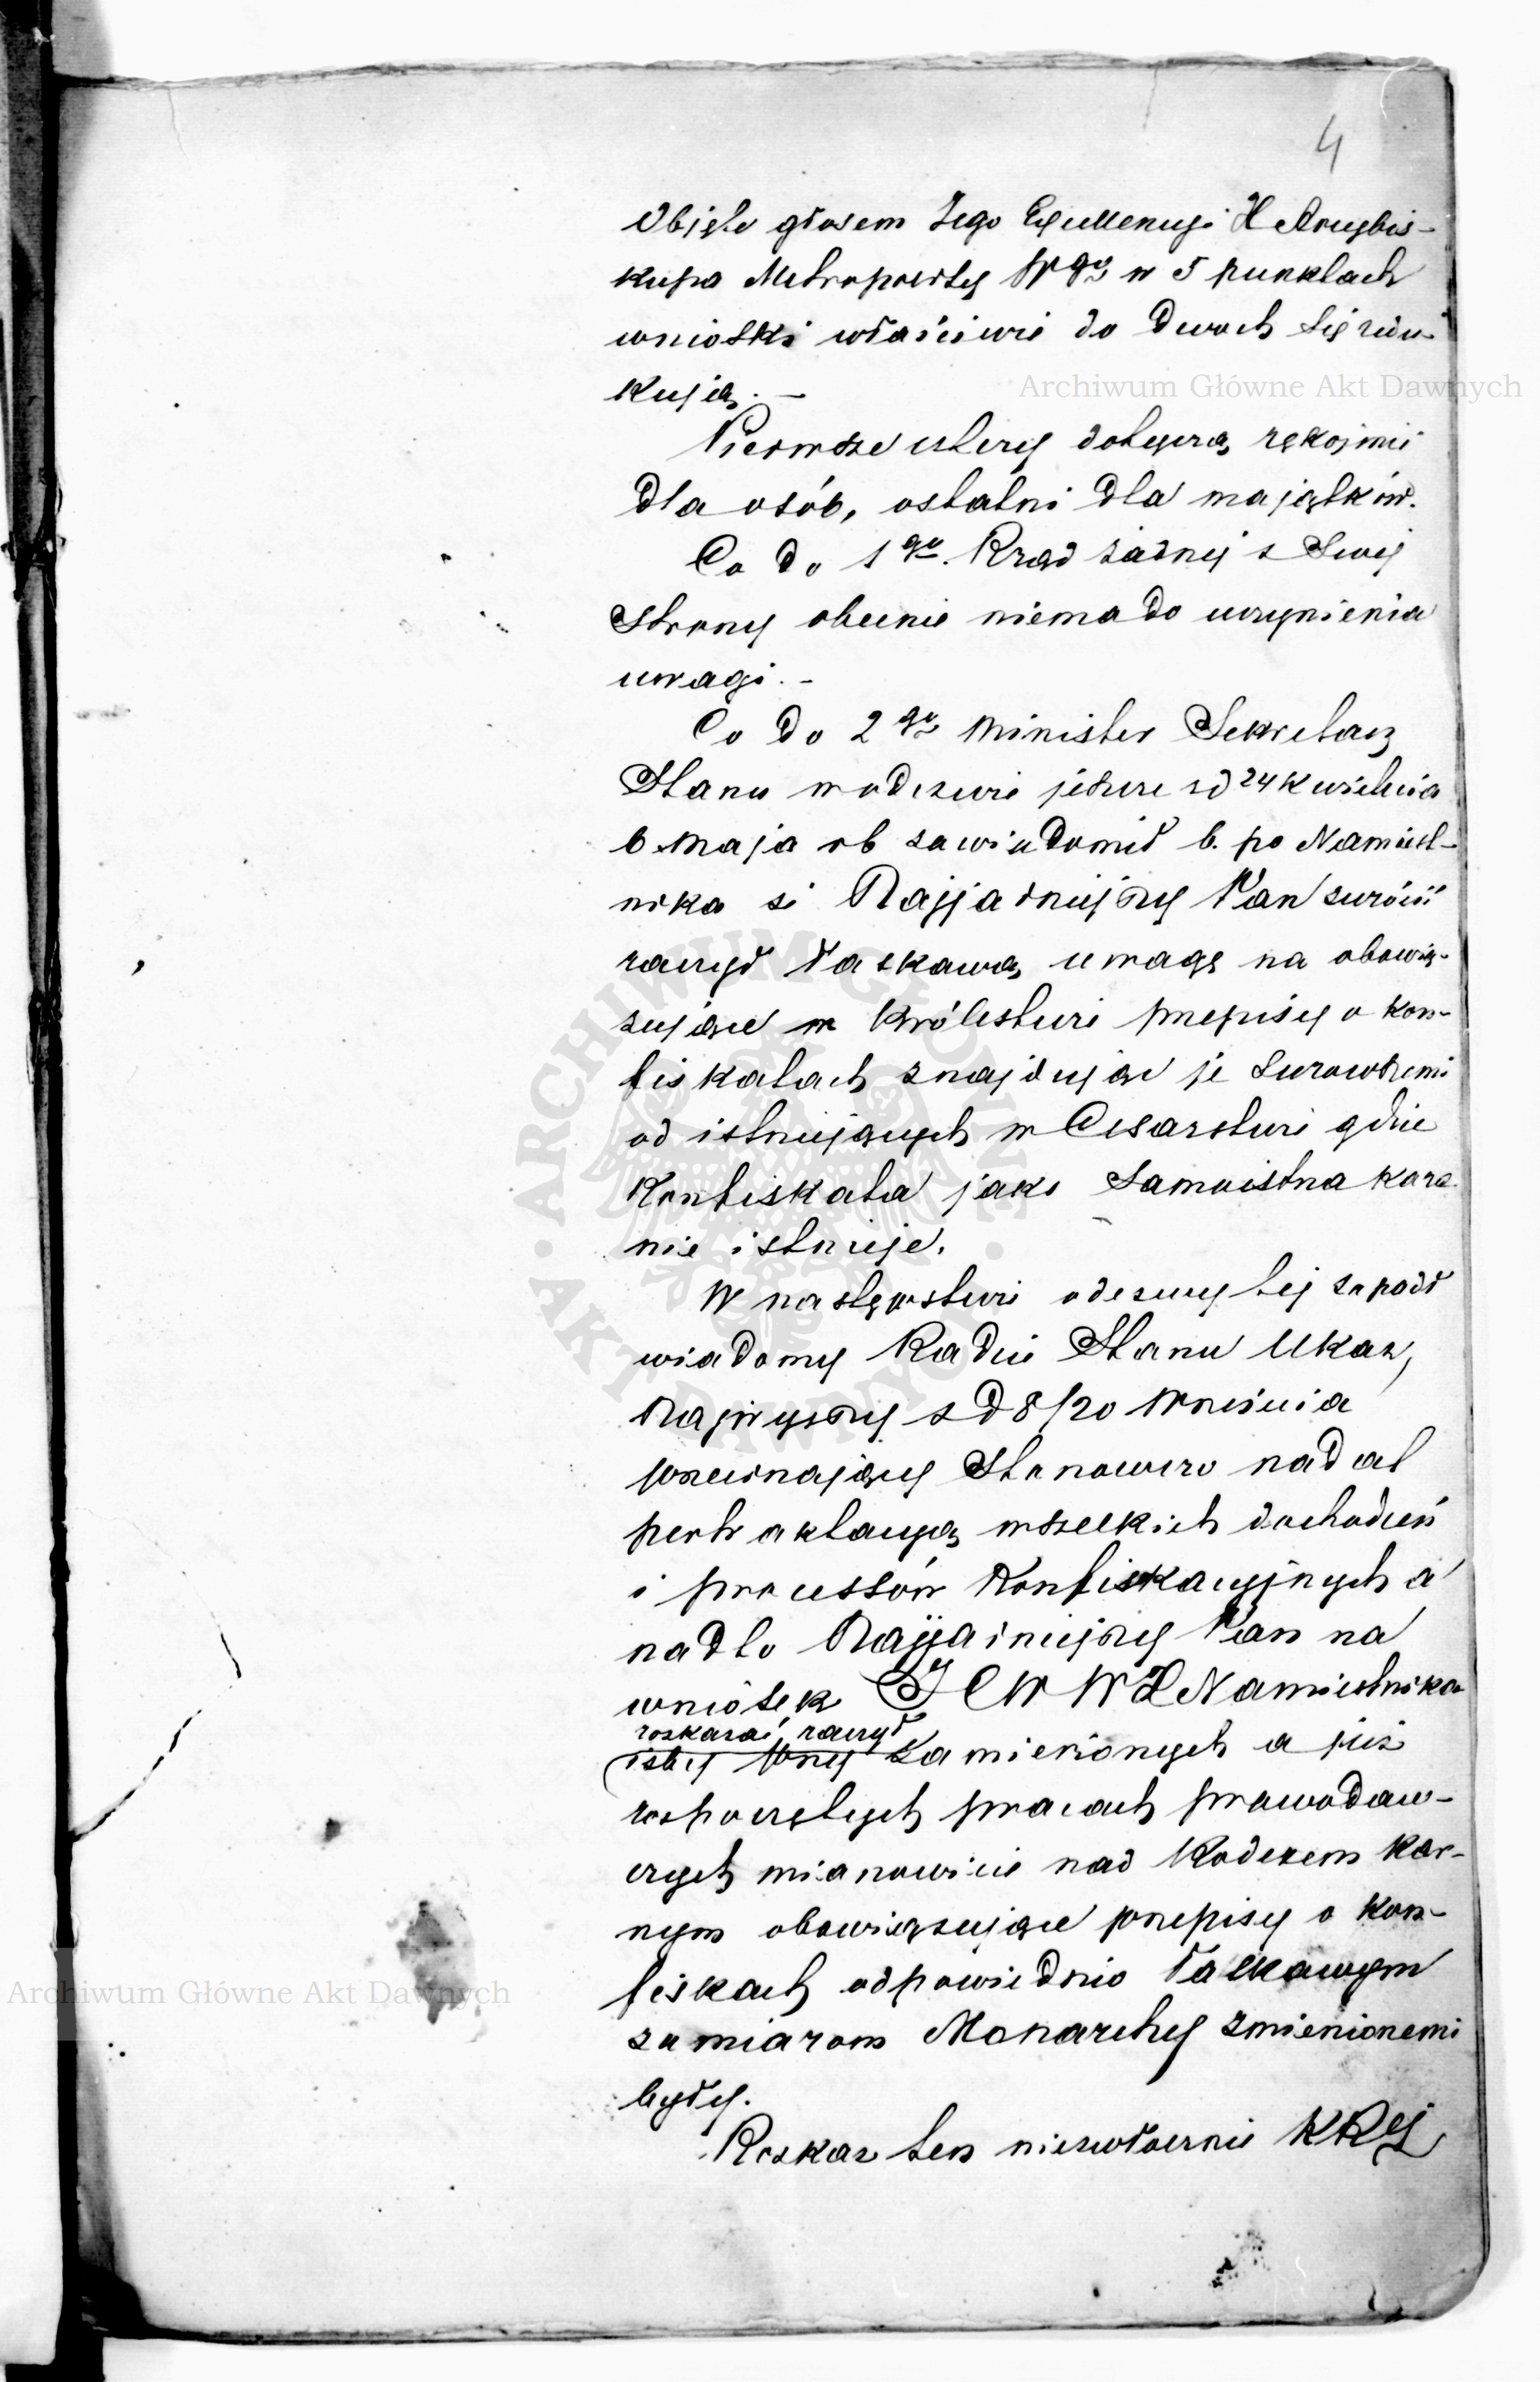 4
Objęte głosem Jego Excellencyi X Arcybis-
kupa Metropolity Wgo w 5 punktach
wnioski właściwie do dwóch się redu-
kują. —
Pierwsze cztery dotyczą rękojmii
dla osób, ostatni dla majątków.
Co do 1go. Rząd żadnej z Swej
Strony obecnie niema do uczynienia
uwagi. -
Co do 2go Minister Sekretarz
Stanu w odezwie jeszcze z d 24 Kwietnia
6 Maja rb zawiadomił b. po Namiest-
nika że Najjaśniejszy Pan zwrócić
raczył łaskawą uwagę na obowią-
zujące w Królestwie przepisy o kon-
fiskatach znajdując je surowszemi
od istniejących w Cesarstwie gdzie
Konfiskata jako samoistna kara
nie istnieje.
W następstwie odezwy tej zapadł
wiadomy Radzie Stanu Ukaz,
Najwyższy z d 8/20 Września
przecinający Stanowczo nadal
pertraktacyą wszelkich dochodzeń
i processów Konfiskacyjnych a
nadto Najjaśniejszy Pan na
wniosek J C W W X Namiestnika
rozkazać raczył
iżby przy zamierzonych a już
rozpoczętych pracach prawodaw-
czych mianowicie nad Kodexem Kar-
nym obowiązujące przepisy o kon-
fiskach odpowiednio łaskawym
zamiarom Monarchy zmienionemi
były.
Rozkaz ten niezwłocznie KRSj
Archiwum Główne Akt Dawnych
Archiwum Główne Akt Dawnych
ARCHIWUM GŁÓWNE · AKT DAWNYCH ·